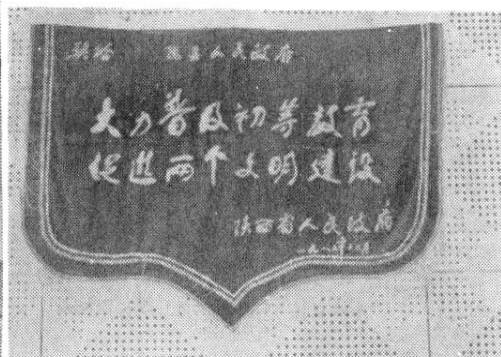 奖给 县人民政府
大力普及初等教育
促进两个文明建设
陕西省人民政府
一九八